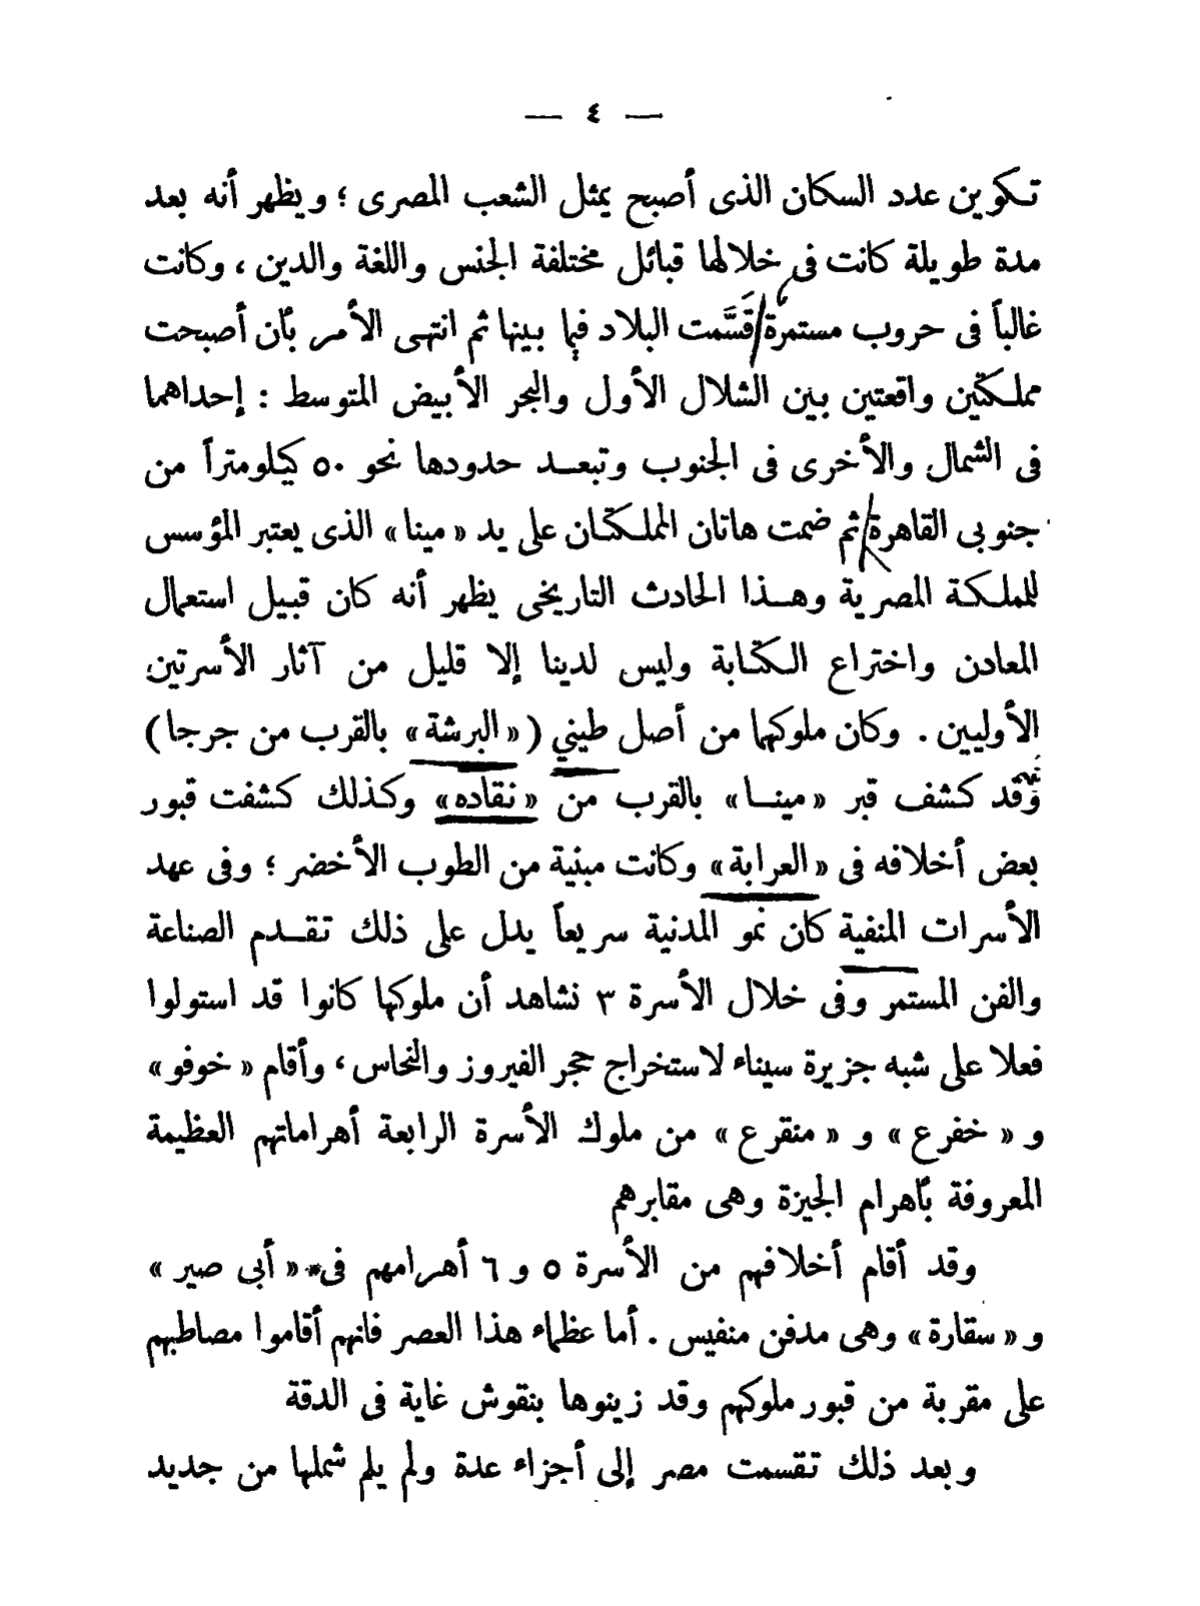 — ٤ —
تكوين عدد السكان الذى أصبح يمثل الشعب المصرى ؛ ويظهر أنه بعد
مدة طويلة كانت فى خلالها قبائل مختلفة الجنس واللغة والدين ، وكانت
غالباً فى حروب مستمرة قَسَّمت البلاد فيما بينها ثم انتهى الأمر بأن أصبحت
مملكتين واقعتين بين الشلال الأول والبحر الأبيض المتوسط : إحداهما
فى الشمال والأخرى فى الجنوب وتبعد حدودها نحو ٥٠ كيلومتراً من
جنوبى القاهرة ثم ضمت هاتان المملكتان على يد « مينا » الذى يعتبر المؤسس
للمملكة المصرية وهذا الحادث التاريخى يظهر أنه كان قبيل استعمال
المعادن واختراع الكتابة وليس لدينا إلا قليل من آثار الأسرتين
الأوليين . وكان ملوكهما من أصل طيني ( « البرشة » بالقرب من جرجا )
وقد كشف قبر « مينا » بالقرب من « نقاده » وكذلك كشفت قبور
بعض أخلافه فى « العرابة » وكانت مبنية من الطوب الأخضر ؛ وفى عهد
الأسرات المنفية كان نمو المدنية سريعاً يدل على ذلك تقدم الصناعة
والفن المستمر وفى خلال الأسرة ٣ نشاهد أن ملوكها كانوا قد استولوا
فعلا على شبه جزيرة سيناء لاستخراج حجر الفيروز والنحاس ، وأقام « خوفو »
و « خفرع » و « منقرع » من ملوك الأسرة الرابعة أهراماتهم العظيمة
المعروفة بأهرام الجيزة وهى مقابرهم
وقد أقام أخلافهم من الأسرة ٥ و ٦ أهرامهم فى « أبى صير »
و « سقارة » وهى مدفن منفيس . أما عظماء هذا العصر فانهم أقاموا مصاطبهم
على مقربة من قبور ملوكهم وقد زينوها بنقوش غاية فى الدقة
وبعد ذلك تقسمت مصر إلى أجزاء عدة ولم يلم شملها من جديد